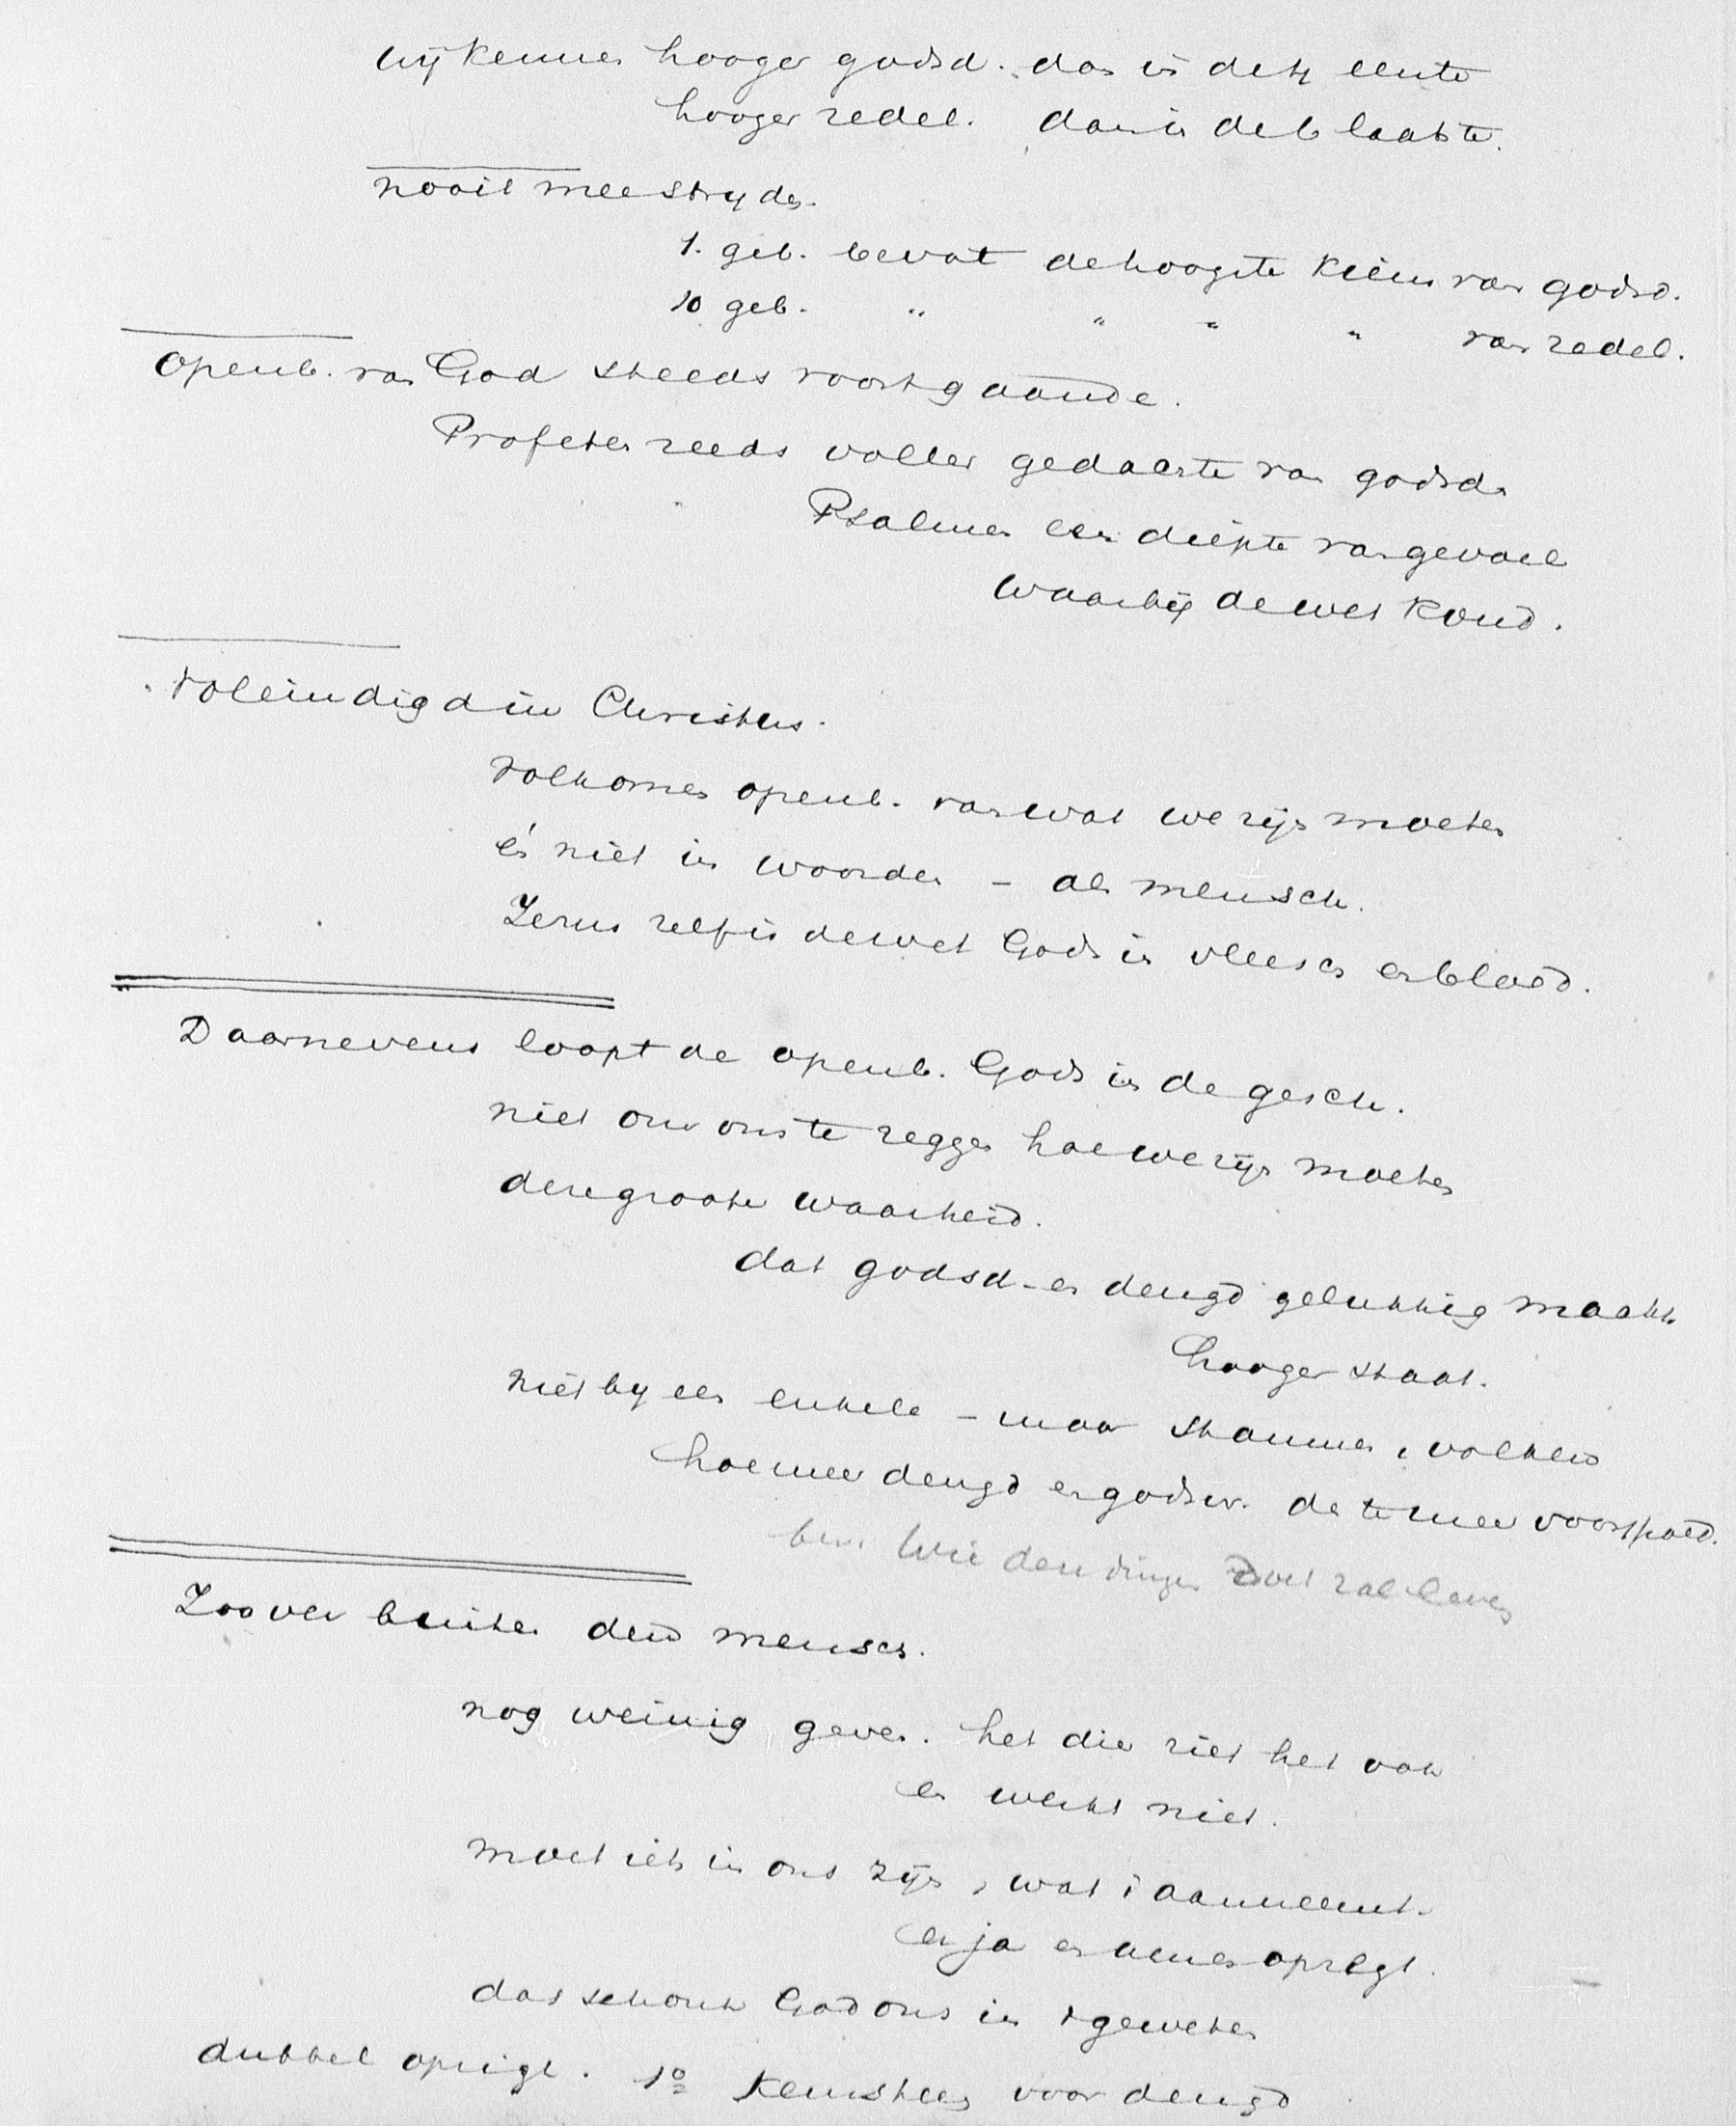 wij kennen hooger godsd. dan in de 4 eerste
hooger zedel. dan in de 6 laatste.
nooit mee strijden.
1. geb. bevat de hoogste kiem van godsd.
10 geb. " " " " van zedel.
Openb. van God steeds voortgaande.
Profeten reeds voller gedachte van godsd.
Psalmen een diepte van gevoel
waarbij de wet koud.
Voleindigd in Christus.
Volkomen openb. van wat we zijn moeten
én niet in woorden – als mensch.
Jezus zelf is de wet Gods in vleesch en bloed.
Daarnevens loopt de openb. Gods in de gesch.
niet om ons te zeggen hoe we zijn moeten
deze groote waarheid.
dat godsd. en deugd gelukkig maakt.
hooger staat.
niet bij een enkele – maar stammen, volken
hoe meer deugd en godsv. des te meer voorspoed.
Wie deze dingen doet zal leven
Zoover buiten den mensch.
nog weinig geven. het dier ziet het ook
en werkt niet.
moet iets in ons zijn, wat 't aanneemt.
en ja en amen op zegt.
dat schonk God ons in 't geweten
dubbel opzigt. 1º Kenschets voor deugd